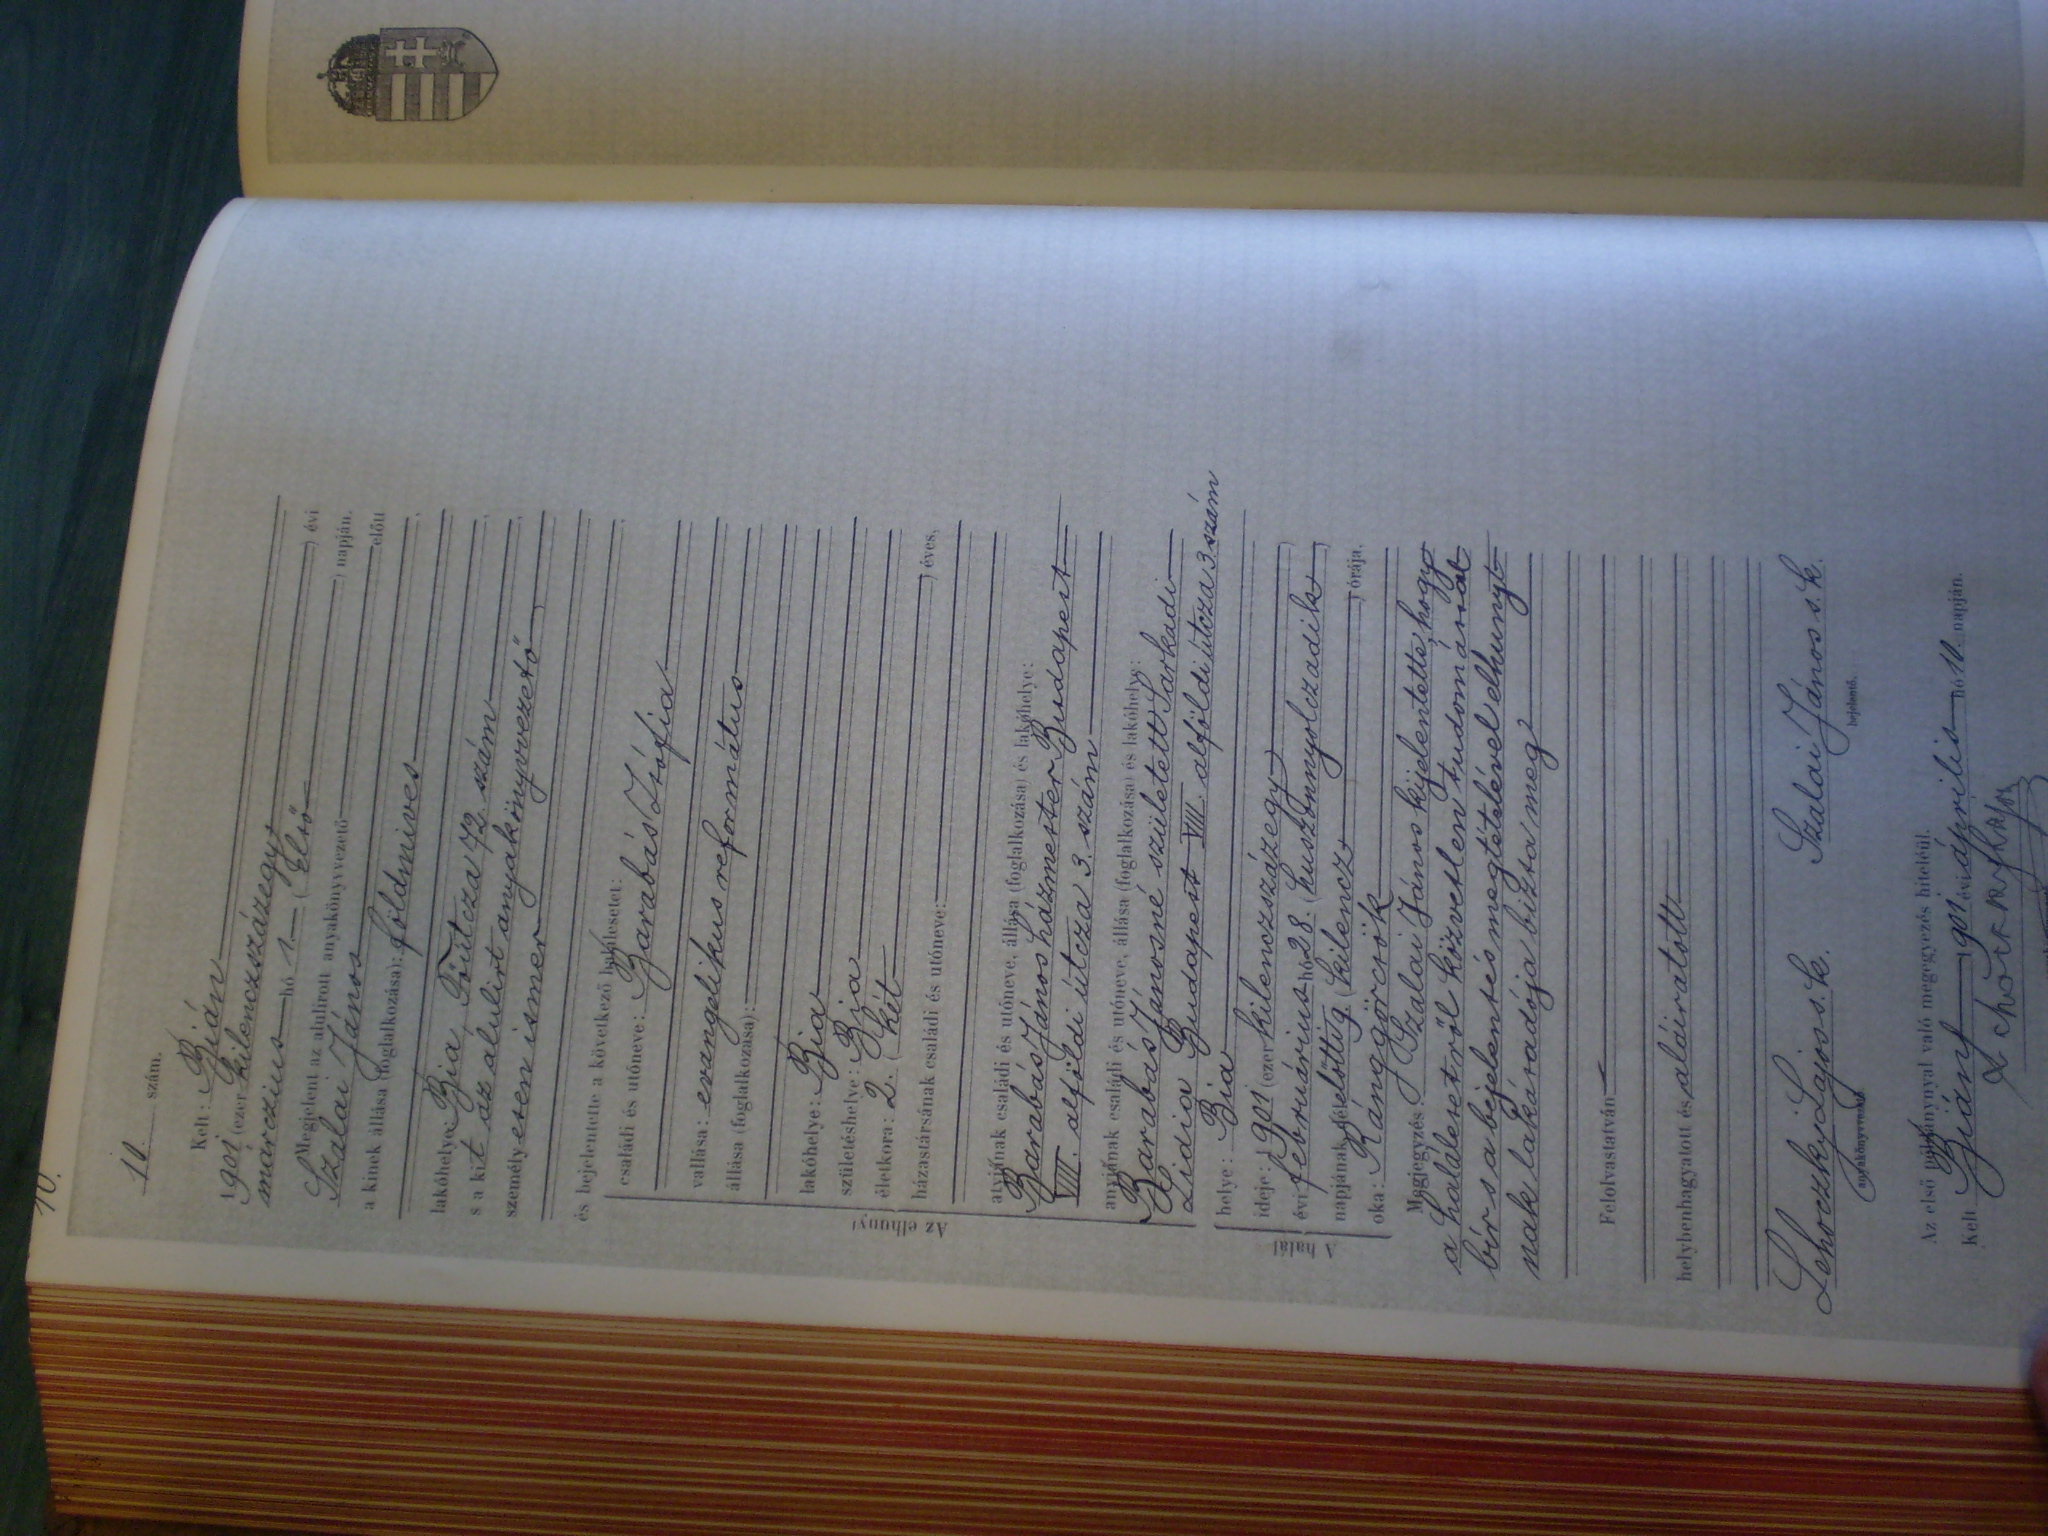 10.
10. szám.
Kelt: Bián
1901 (ezer kilenczszázegy) évi
márczius hó 1. (Első) napján.
Megjelent az alulirott anyakönyvvezető előtt
Szalai János
a kinek állása (foglalkozása): földmives,
lakóhelye: Bia, Főútcza 72. szám,
s a kit az alulirt anyakönyvvezető
személyesen ismer,
és bejelentette a következő halálesetet:
Az elhunyt
családi és utóneve: Barabás Zsófia
vallása: evangelikus református
állása (foglalkozása):
lakóhelye: Bia
születéshelye: Bia
életkora: 2. (két) éves,
házastársának családi és utóneve:
atyjának családi és utóneve, állása (foglalkozása) és lakóhelye:
Barabás János házmester Budapest
VIII. alföldi útcza 3. szám
anyjának családi és utóneve, állása (foglalkozása) és lakóhelye:
Barabás Jánosné született Sarkadi
Lidia Budapest VIII. alföldi útcza 3 szám
A halál
helye: Bia
ideje: 1901 (ezer kilenczszázegy)
évi februárius hó 28. (huszonnyolczadik)
napjának délelőtti 9. (kilencz) órája.
oka: Ránggörcsök
Megjegyzés: Szalai János kijelentette, hogy
a halálesetről közvetlen tudomással
bír s a bejelentés megtételével elhunyt-
nak lakáradója bizta meg
Felolvastatván
helybenhagyatott és aláiratott
Lehoczky Lajos s. k. Szalai János s. k.
anyakönyvvezető. bejelentő.
Az első példánynyal való megegyezés hiteléül.
Kelt Bián, 1901 évi április hó 10. napján.
Lehoczky Lajos